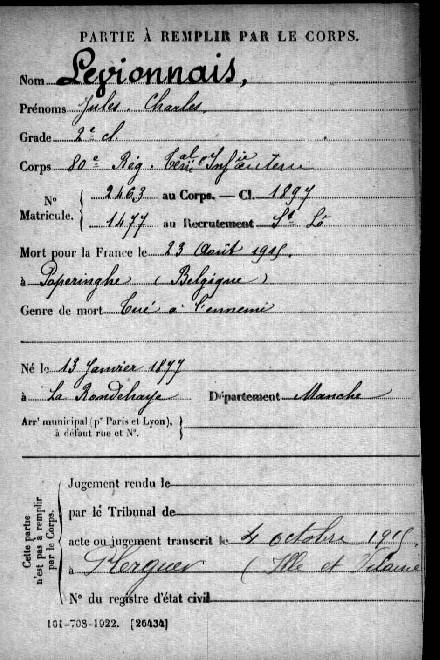 PARTIE À REMPLIR PAR LE CORPS.
Nom Legionnais,
Prénoms Jules Charles
Grade 2e cl.
Corps 80e Rég. Terial d'Infanterie
N° Matricule. 2463 au Corps. — Cl. 1897
1477 au Recrutement St Lô
Mort pour la France le 23 Août 1915
à Poperinghe (Belgique)
Genre de mort Tué à l'ennemi
Né le 13 Janvier 1877
à La Rondehaye Département Manche
Arrt municipal (pr Paris et Lyon), à défaut rue et N°.
Cette partie n'est pas à remplir par le Corps.
Jugement rendu le
par le Tribunal de
acte ou jugement transcrit le 4 octobre 1915
à Plerguer (Ille et Vilaine
N° du registre d'état civil
101-708-1922. [26434]